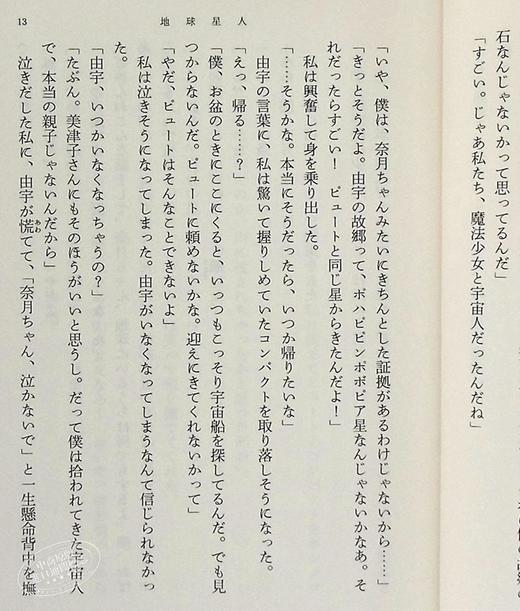 石なんじゃないかって思ってるんだ」
「すごい。じゃあ私たち、魔法少女と宇宙人だったんだね」
地球星人
13
「いや、僕は、奈月ちゃんみたいにきちんとした証拠があるわけじゃないから……」
「きっとそうだよ。由宇の故郷って、ポハピピンポボピア星なんじゃないかなあ。そ
れだったらすごい！　ピュートと同じ星からきたんだよ！」
私は興奮して身を乗り出した。
「……そうかな。本当にそうだったら、いつか帰りたいな」
由宇の言葉に、私は驚いて握りしめていたコンパクトを取り落しそうになった。
「えっ、帰る……？」
「僕、お盆のときにここにくると、いっつもこっそり宇宙船を探してるんだ。でも見
つからないんだ。ピュートに頼めないかな。迎えにきてくれないかって」
「やだ、ピュートはそんなことできないよ」
私は泣きそうになってしまった。由宇がいなくなってしまうなんて信じられなかっ
た。
「由宇、いつかいなくなっちゃうの？」
「たぶん。美津子さんにもそのほうがいいと思うし。だって僕は拾われてきた宇宙人
で、本当の親子じゃないんだから」
泣きだした私に、由宇が慌てて、「奈月ちゃん、泣かないで」と一生懸命背中を撫